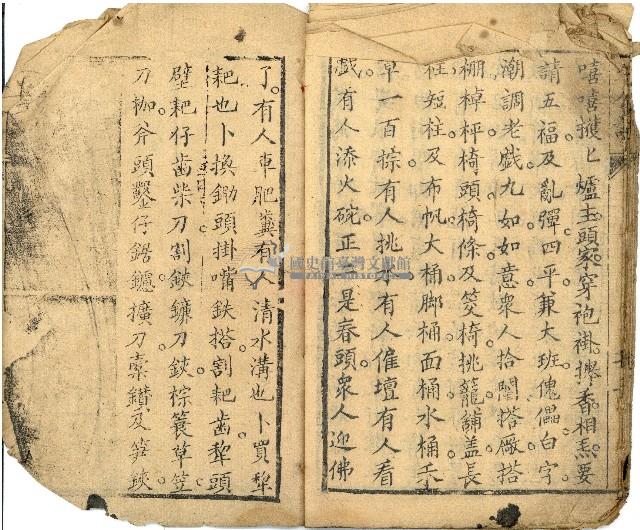 嘻嘻攏匕爐主頭家穿袍褂攑香相焉要
請五福及亂彈四平兼大班傀儡白字
潮調老戲九如如意衆人拾鬮搭廠搭
棚棹枰椅頭椅條及笅椅挑籠舖盖長
柱短柱及布帆大桶脚桶面桶水桶禾
草一百棕有人挑水有人催壇有人看
戲有人添火碗正是春頭衆人迎佛
了有人車肥糞有人清水溝也卜買犁
耙也卜換鋤頭掛嘴鈇搭割耙齒犁頭
壁耙仔齒柴刀割鋏鐮刀鋏棕簑草笠
刀枷斧頭鑿仔鋸鑢擴刀索鑽及笋鋏
國史館臺灣文獻館